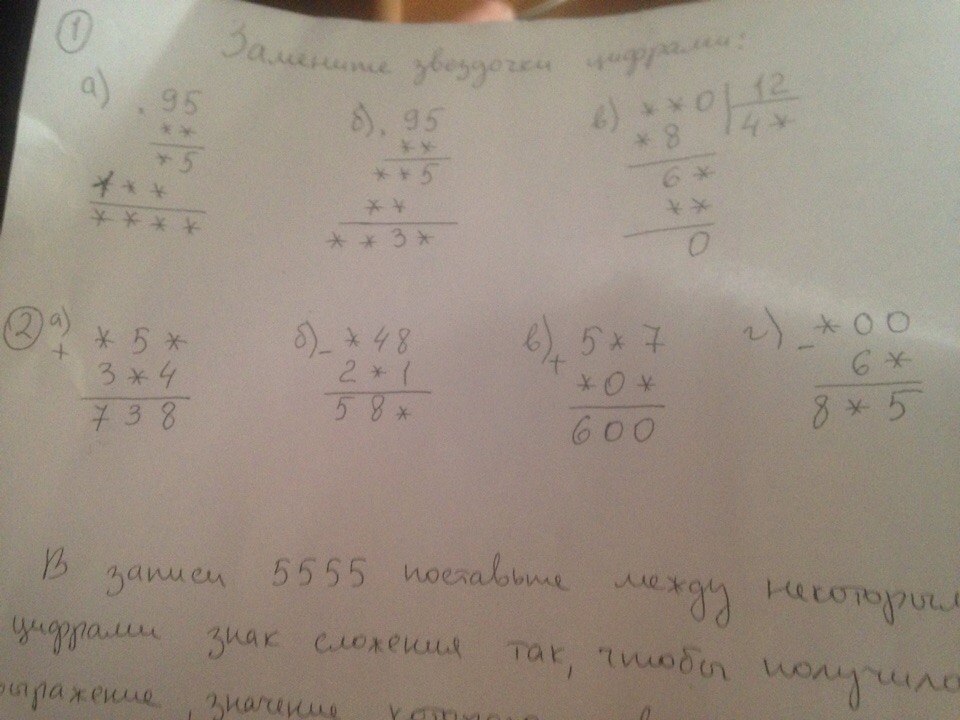 ① Замените звездочки цифрами:
а) . 95
**
*5
***
****
б) . 95
**
**5
**
**3*
в) **0 | 12
*8 | 4*
6*
**
0
② а) + *5*
3*4
738
б) - *48
2*1
58*
в) + 5*7
*0*
600
г) - *00
6*
8*5
В записи 5555 поставьте между некоторым
цифрами знак сложения так, чтобы получило
выражение, значение которого